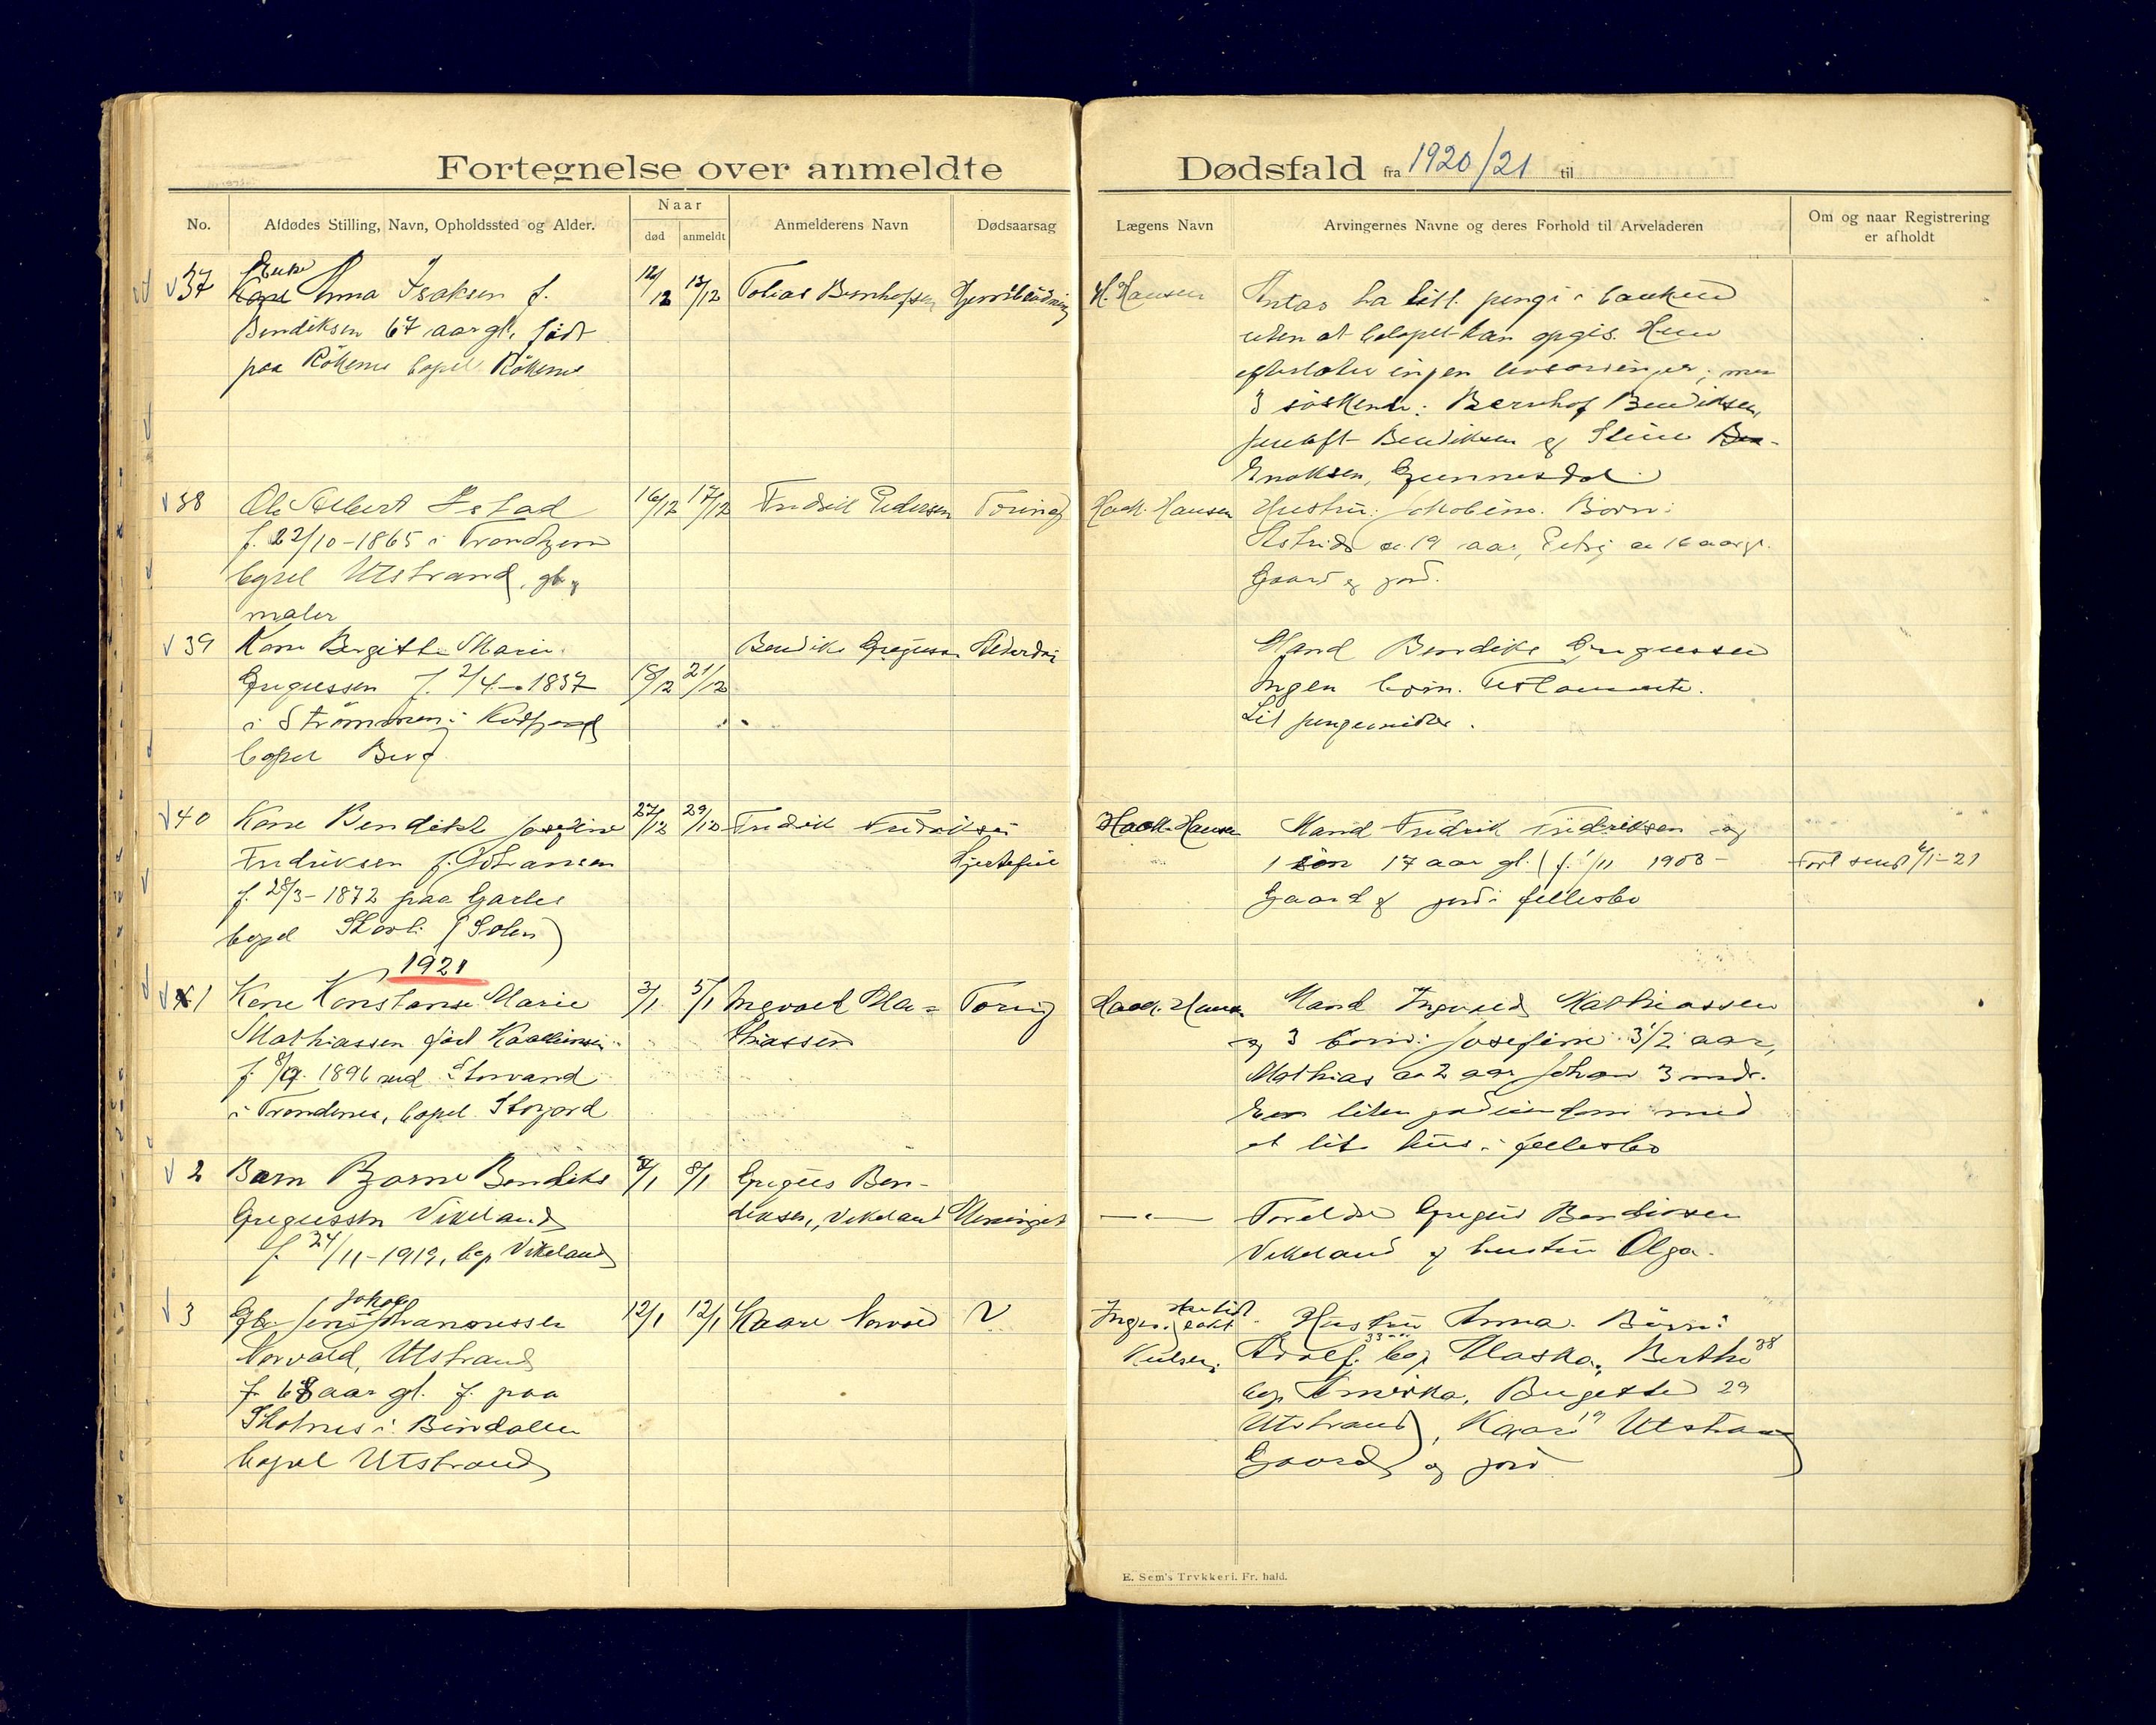 Fortegnelse over anmeldte
Dødsfald fra 1920/21 til
No.
Afdødes Stilling, Navn, Opholdssted og Alder.
Naar
død
anmeldt
Anmelderens Navn
Dødsaarsag
Lægens Navn
Arvingernes Navne og deres Forhold til Arveladeren
Om og naar Registrering
er afholdt
37
Enke
Kone Anna Isaksen f.
Bendiksen 67 aar gl. født
paa Rökenes bopel Rökenes
12/12
13/12
Tobias Bernhofsen
Hjerneblödning
H. Hansen
Antas ha litt penge i banken
uten at belöpet kan opgis. Hun
efterlater ingen livsarvinger, men
3 söskende: Bernhof Bendiksen,
Bendiksen og Stine Ben-
Enoksen, Gunnesdal
38
Ole Albert Estad
f. 22/10-1865 i Trondhjem
bopel Utstrand, gb. og
maler
16/12
17/12
Fredrik Pedersen
Tæring
Hack. Hansen
Hustru: Jakobine. Börn:
Astrid ca. 19 aar, Petra ca 16 aar gl.
Gaard og jord.
39
Kone Bergitte Marie
Gregussen f. 2/4-1837
i Strömmen i Kvæfjord
bopel Berg
18/12
21/12
Bendiks Gregussen
Alderdom
Mand Bendiks Gregussen
Ingen börn. Testamente.
Lit pengemidler.
40
Kone Bendikte Josefine
Fredriksen f. Johansen
f. 28/3-1872 paa Garles
bopel Skarli (Solen)
27/12
29/12
Fredrik Fredriksen
Hjertefeil
Hack. Hansen
Mand Fredrik Fredriksen og
1 sön 17 aar gl. (f. 1/11 1903-
Gaard og jord i fellesbo
Fort send 4/1-21
1921
1
Kone Konstanse Marie
Mathiassen föd Karolinsen
f. 8/9. 1896 ved Storvand
i Trondenes, bopel Storjord
3/1
5/1
Ingvald Ma-
thiassen
Tæring
Hack. Hansen
Mand Ingvald Mathiassen
og 3 börn: Josefine 3 1/2 aar,
Mathias ca 2 aar Johan 3 mdr.
En liten jordeiendom med
et lite hus i fellesbo
2
Barn Bjarne Bendiks
Gregussen Vikeland
f. 24/11-1919, bop Vikeland
8/1
8/1
Gregus Ben-
diksen, Vikeland
Meningit
—"—
Foreldre Gregus Bendiksen
Vikeland og hustru Olga.
3
Jakob
Gb. Jens Johannessen
Norvald, Utstrand
f. 68 aar gl. f. paa
Skotnes i Bindalen
bopel Utstrand
12/1
12/1
Kaare Norvald
?
Ingen
Hustru Anna. Börn:
Adolf 33 bop Alaska, Berthe 38
bop Amerika, Birgitte 29
Utstrand, Kaare 19 Utstrand
Gaard og jord
E. Sem's Trykkeri. Fr.hald.